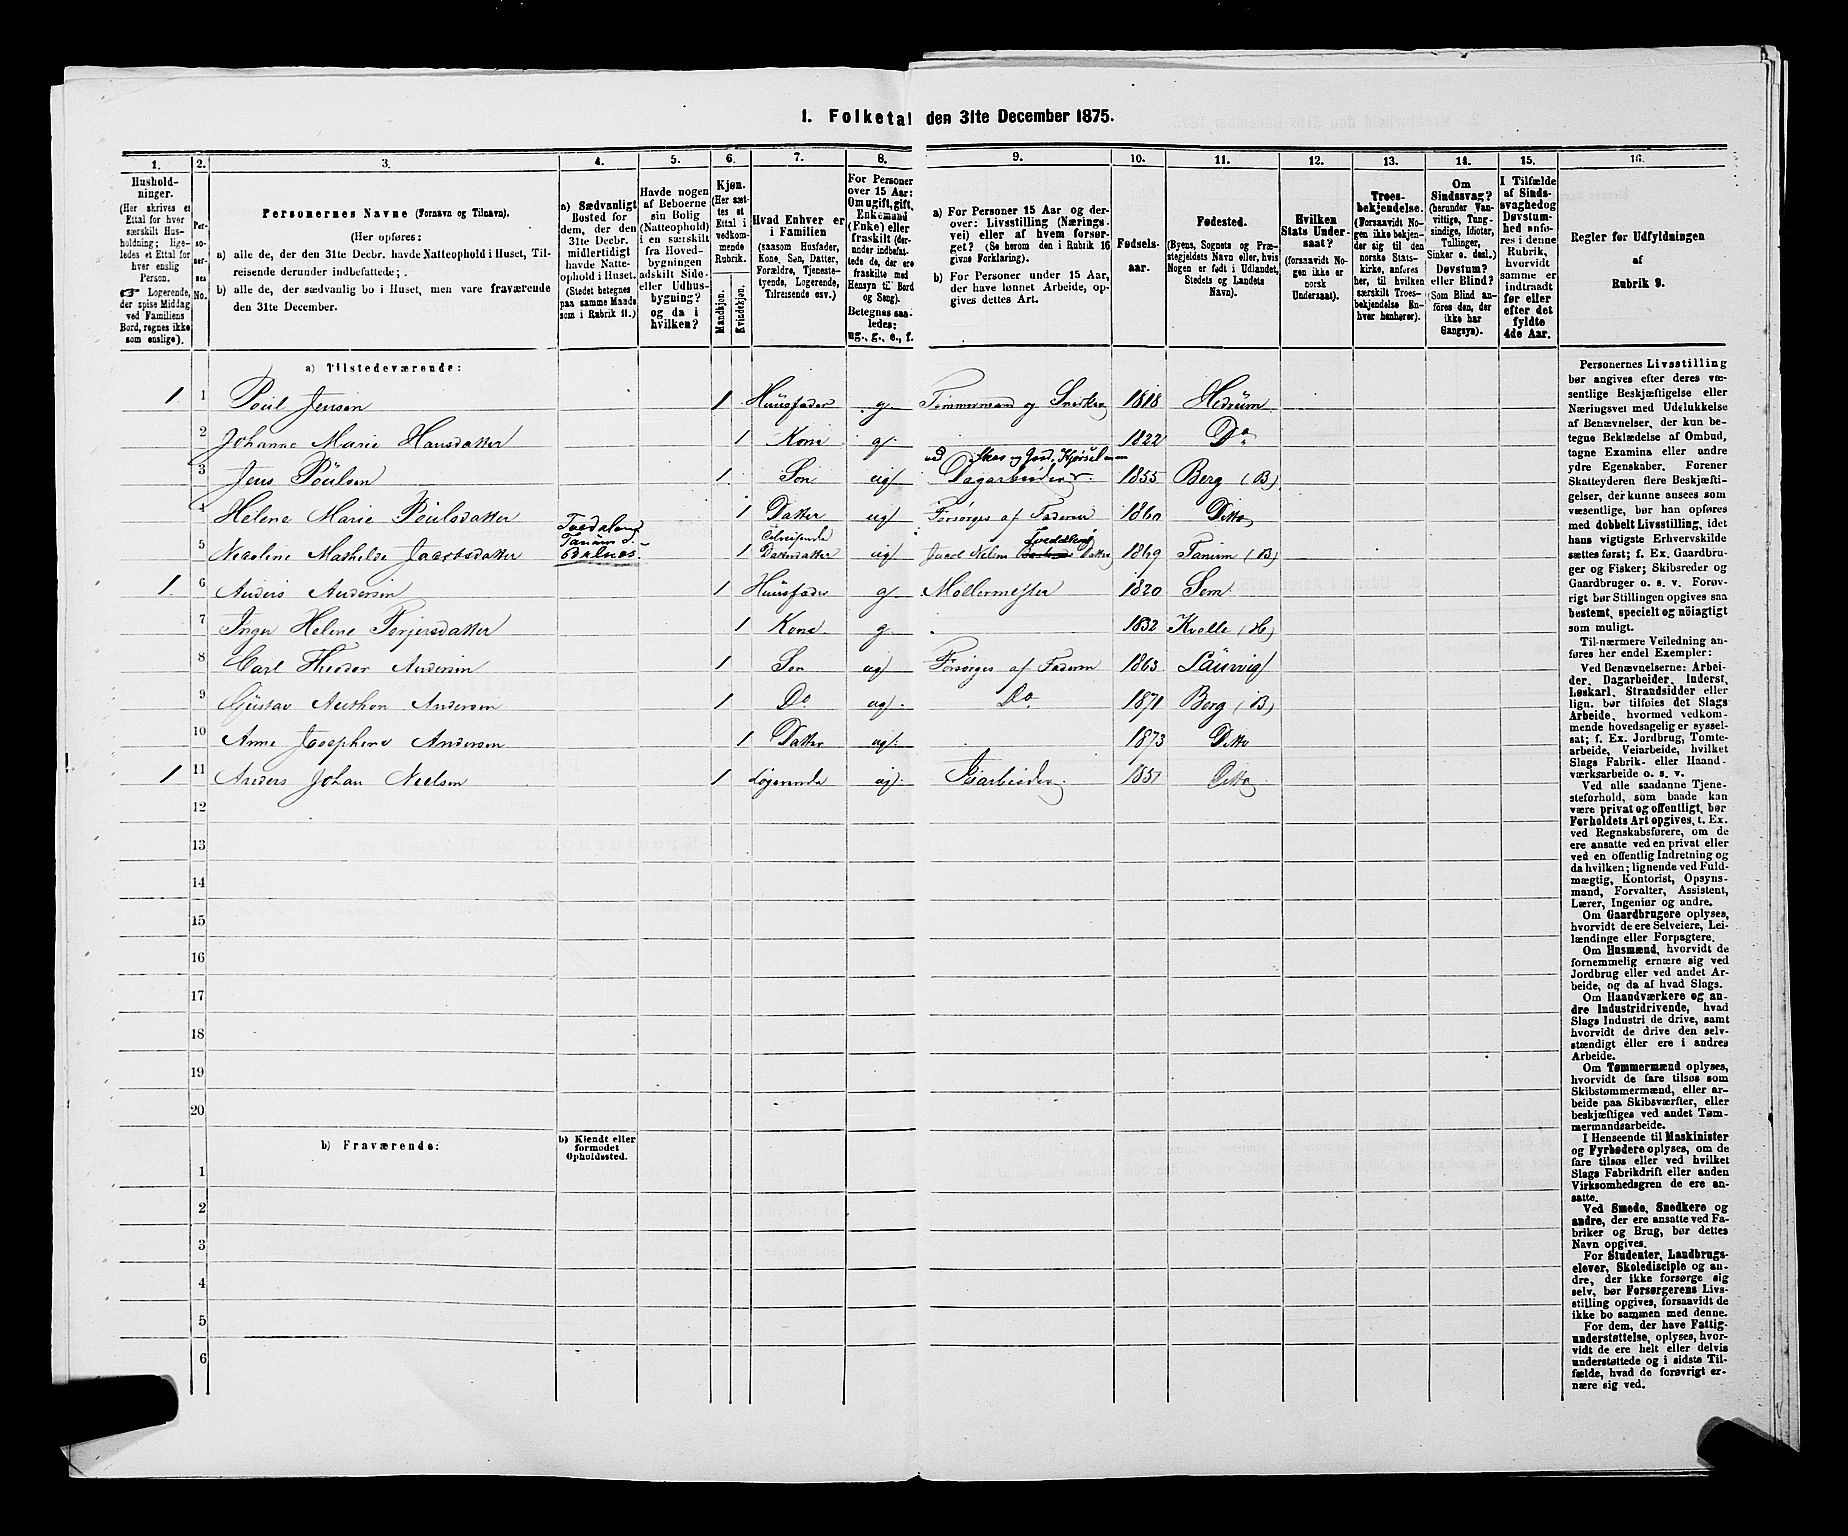 1. Folketal den 31te December 1875.
1. 2. 3. 4. 5. 6. 7. 8. 9. 10. 11. 12. 13. 14. 15. 16.
Hushold-
ninger.
(Her skrives et
Ettal for hver
særskilt Hus-
holdning; lige-
ledes et Ettal for
hver enslig
Person.
☞ Logerende,
der spise Middag
ved Familiens
Bord, regnes ikke
som enslige).
Per-
so-
ner-
nes
No.
Personernes Navne (Fornavn og Tilnavn).
(Her opføres:
a) alle de, der den 31te Decbr. havde Natteophold i Huset, Til-
reisende derunder indbefattede;
b) alle de, der sædvanlig bo i Huset, men vare fraværende
den 31te December.
a) Sædvanligt
Bosted for
dem, der den
31te Decbr.
midlertidigt
havde Natte-
ophold i Huset.
(Stedet betegnes
paa samme Maade
som i Rubrik 11.)
Havde nogen
af Beboerne
sin Bolig
(Natteophold)
i en særskilt
fra Hoved-
bygningen
adskilt Side-
eller Udhus-
bygning?
og da i
hvilken?
Kjøn.
(Her sæt-
tes et
Ettal i
vedkom-
mende
Rubrik.
Mandkjøn.
Kvindekjøn.
Hvad Enhver er
i Familien
(saasom Husfader,
Kone, Søn, Datter,
Forældre, Tjeneste-
tyende, Logerende,
Tilreisende osv.)
For Personer
over 15 Aar:
Om ugift, gift,
Enkemand
(Enke) eller
fraskilt (der-
under indbefat-
tede de, der ere
fraskilte med
Hensyn til Bord
og Seng).
Betegnes saa-
ledes:
ug., g., e., f.
a) For Personer 15 Aar og der-
over: Livsstilling (Nærings-
vei) eller af hvem forsør-
get? (Se herom den i Rubrik 16
givne Forklaring).
b) For Personer under 15 Aar,
der have lønnet Arbeide, op-
gives dettes Art.
Fødsels-
aar.
Fødested.
(Byens, Sognets og Præ-
stegjeldets Navn eller, hvis
Nogen er født i Udlandet,
Stedets og Landets
Navn).
Hvilken
Stats Under-
saat?
(foraavidt No-
gen ikke er
norsk
Undersaat).
Troes-
bekjendelse.
(Forsaavidt No-
gen ikke bekjen-
der sig til den
norske Stats-
kirke, anføres
her, til hvilken
særskilt Troes-
bekjendelse En-
hver henhører).
Om
Sindssvag?
(herunder Van-
vittige, Tung-
sindige, Idioter,
Tullinger,
Sinker o. desl.)
Døvstum?
eller Blind?
(Som Blind anføres
den, der
ikke har
Gangsyn).
I Tilfælde
af Sinds-
svaghed og
Døvstum-
hed anfø-
res i denne
Rubrik,
hvorvidt
samme er
indtraadt
før eller
efter det
fyldte
4de Aar.
Regler for Udfyldningen
af
Rubrik 9.
a) Tilstedeværende:
1 1 Poul Jensen 1 Huusfader g. Tømmermand og Snedker 1818 Hedrum
2 Johanne Marie Hansdatter 1 Kone g. 1822 Do
ved Skov og Jord, Kjørsel
3 Jens Poulsen 1 Søn ug Dagarbeider 1855 Berg (B)
4 Helene Marie Poulsdatter 1 Datter ug Forsørges af Faderen 1860 Ditto
5 Nicoline Mathilde Jacobsdatter Tvedalene Tanum S. Bdelnæs 1 tilreisende Datterdatter ug Jacob Nielsen Tvedalene Datter 1869 Tanum (B)
1 6 Anders Andersen 1 Huusfader g Møllermester 1820 Sem
7 Inger Helene Torjersdatter 1 Kone g. 1832 Kvelle (H)
8 Carl Theodor Andersen 1 Søn ug Forsørges af Faderen 1863 Laurvig
9 Gustav Anthon Andersen 1 Do ug. Do 1871 Berg (B)
10 Anne Josephine Andersen 1 Datter ug. 1873 Ditto
1 11 Anders Johan Nielsen 1 Logerende ug. Isarbeider 1857 Ditto
12
13
14
15
16
17
18
19
20
b) Fraværende:
b) Kjendt eller
formodet
Opholdssted.
1
2
3
4
5
6
Personernes Livsstilling
bør angives efter deres væ-
sentlige Beskjæftigelse eller
Næringsvei med Udelukkelse
af Benævnelser, der kun be-
tegne Beklædelse af Ombud,
tagne Examina eller andre
ydre Egenskaber. Forener
Skatteyderen flere Beskjæfti-
gelser, der kunne ansees som
væsentlige, bør han opføres
med dobbelt Livsstilling, idet
hans vigtigste Erhvervskilde
sættes først; f. Ex. Gaardbru-
ger og Fisker; Skibsreder og
Gaardbruger o. s. v. Forøv-
rigt bør Stillingen opgives saa
bestemt, specielt og nöiagtigt
som muligt.
Til nærmere Veiledning an-
føres her endel Exempler:
Ved Benævnelserne: Arbei-
der, Dagarbeider, Inderst,
Løskarl, Strandsidder eller
lign. bør tilføies det Slags
Arbeide, hvormed vedkom-
mende hovedsagelig er syssel-
sat; f. Ex. Jordbrug, Tomte-
arbeide, Veiarbeide, hvilket
Slags Fabrik- eller Haand-
værksarbeide o. s. v.
Ved alle saadanne Tjene-
steforhold, som baade kan
være privat og offentligt, bør
Forholdets Art opgives, t. Ex.
ved Regnskabsførere, om de
ere ansatte ved en privat eller
ved en offentlig Indretning og
da hvilken; lignende ved Fuld-
mægtig, Kontorist, Opsyns-
mand, Forvalter, Assistent,
Lærer, Ingeniør og andre.
Om Gaardbrugere oplyses,
hvorvidt de ere Selveiere, Lei-
lændinge eller Forpagtere.
Om Husmænd, hvorvidt de
fornemmelig ernære sig ved
Jordbrug eller ved andet Ar-
beide, og da af hvad Slags.
Om Haandværkere og an-
dre Industridrivende, hvad
Slags Industri de drive, samt
hvorvidt de drive den selv-
stændigt eller ere i andres
Arbeide.
Om Tømmermænd oplyses,
hvorvidt de fare tilsøs som
Skibstømmermænd, eller ar-
beide paa Skibsværfter, eller
beskjæftiges ved andet Tøm-
mermandsarbeide.
I Henseende til Maskinister
og Fyrbødere oplyses, om de
fare tilsøs eller ved hvilket
Slags Fabrikdrift eller anden
Virksomhedsgren de ere an-
satte.
Ved Smede, Snedkere og
andre, der ere ansatte ved Fa-
briker og Brug, bør dettes
Navn opgives.
For Studenter, Landbrugs-
elever, Skoledisciple og an-
dre, der ikke forsørge sig
selv, bør Forsørgerens Livs-
stilling opgives, forsaavidt de
ikke bo sammen med denne.
For dem, der have Fattig-
understøttelse, oplyses, hvor-
vidt de ere helt eller delvis
understøttede og i sidste Til-
fælde, hvad de forøvrigt er-
nære sig ved.